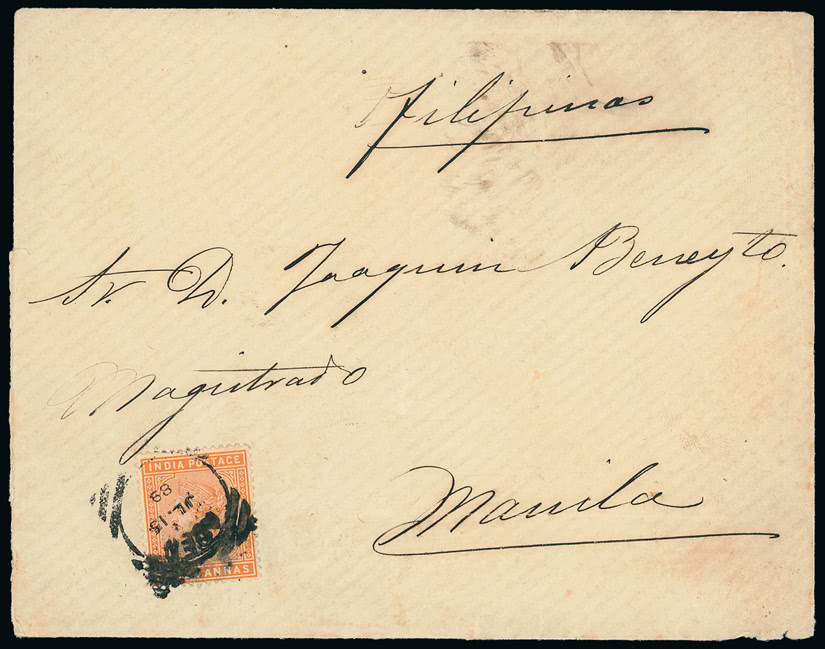 Filipinas
Sr. D. Joaquin Beneyto.
Magistrado
Manila
INDIA POSTAGE
ANNAS
JL.15
89